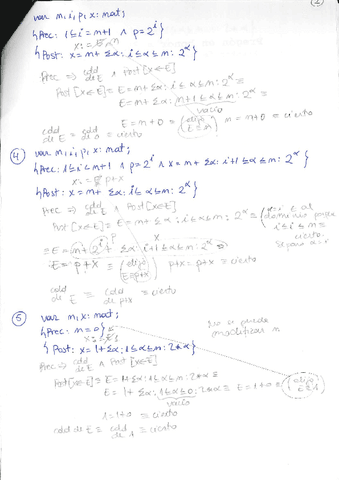 var m, i, p, x: mat;
{Prec: 1≤i=m+1 ∧ p=2^i}
{Post: x=m+Σα: i≤α≤m: 2^α}
Prec ⇒ cdd de E ∧ Post[x←E]
Post[x←E] ≡ E=m+Σα: i≤α≤m: 2^α ≡
E=m+Σα: m+1≤α≤m: 2^α ≡
vacío
E=m+0 ≡ (elijo E=m) m=m+0 ≡ cierto
cdd de E ≡ cdd de m ≡ cierto
④ var m, i, p, x: mat;
{Prec: 1≤i<m+1 ∧ p=2^i ∧ x=m+Σα: i+1≤α≤m: 2^α}
x:= p+x
{Post: x=m+Σα: i≤α≤m: 2^α}
Prec ⇒ cdd de E ∧ Post[x←E]
Post[x←E] ≡ E=m+Σα: i≤α≤m: 2^α ≡
≡ E=m+2^i+Σα: i+1≤α≤m: 2^α ≡
x
E=p+x ≡ (elijo E=p+x) p+x=p+x ≡ cierto
cdd de E ≡ cdd de p+x ≡ cierto
⑤ var m, x: mat;
{Prec: m=0}
{Post: x=1+Σα: 1≤α≤m: 2*α}
no se puede modificar m
Prec ⇒ cdd de E ∧ Post[x←E]
Post[x←E] ≡ E=1+Σα: 1≤α≤m: 2*α ≡
E=1+Σα: 1≤α≤0: 2*α ≡ E=1+0 ≡ (elijo E≡1)
vacío
1=1+0 ≡ cierto
cdd de E ≡ cdd de 1 ≡ cierto